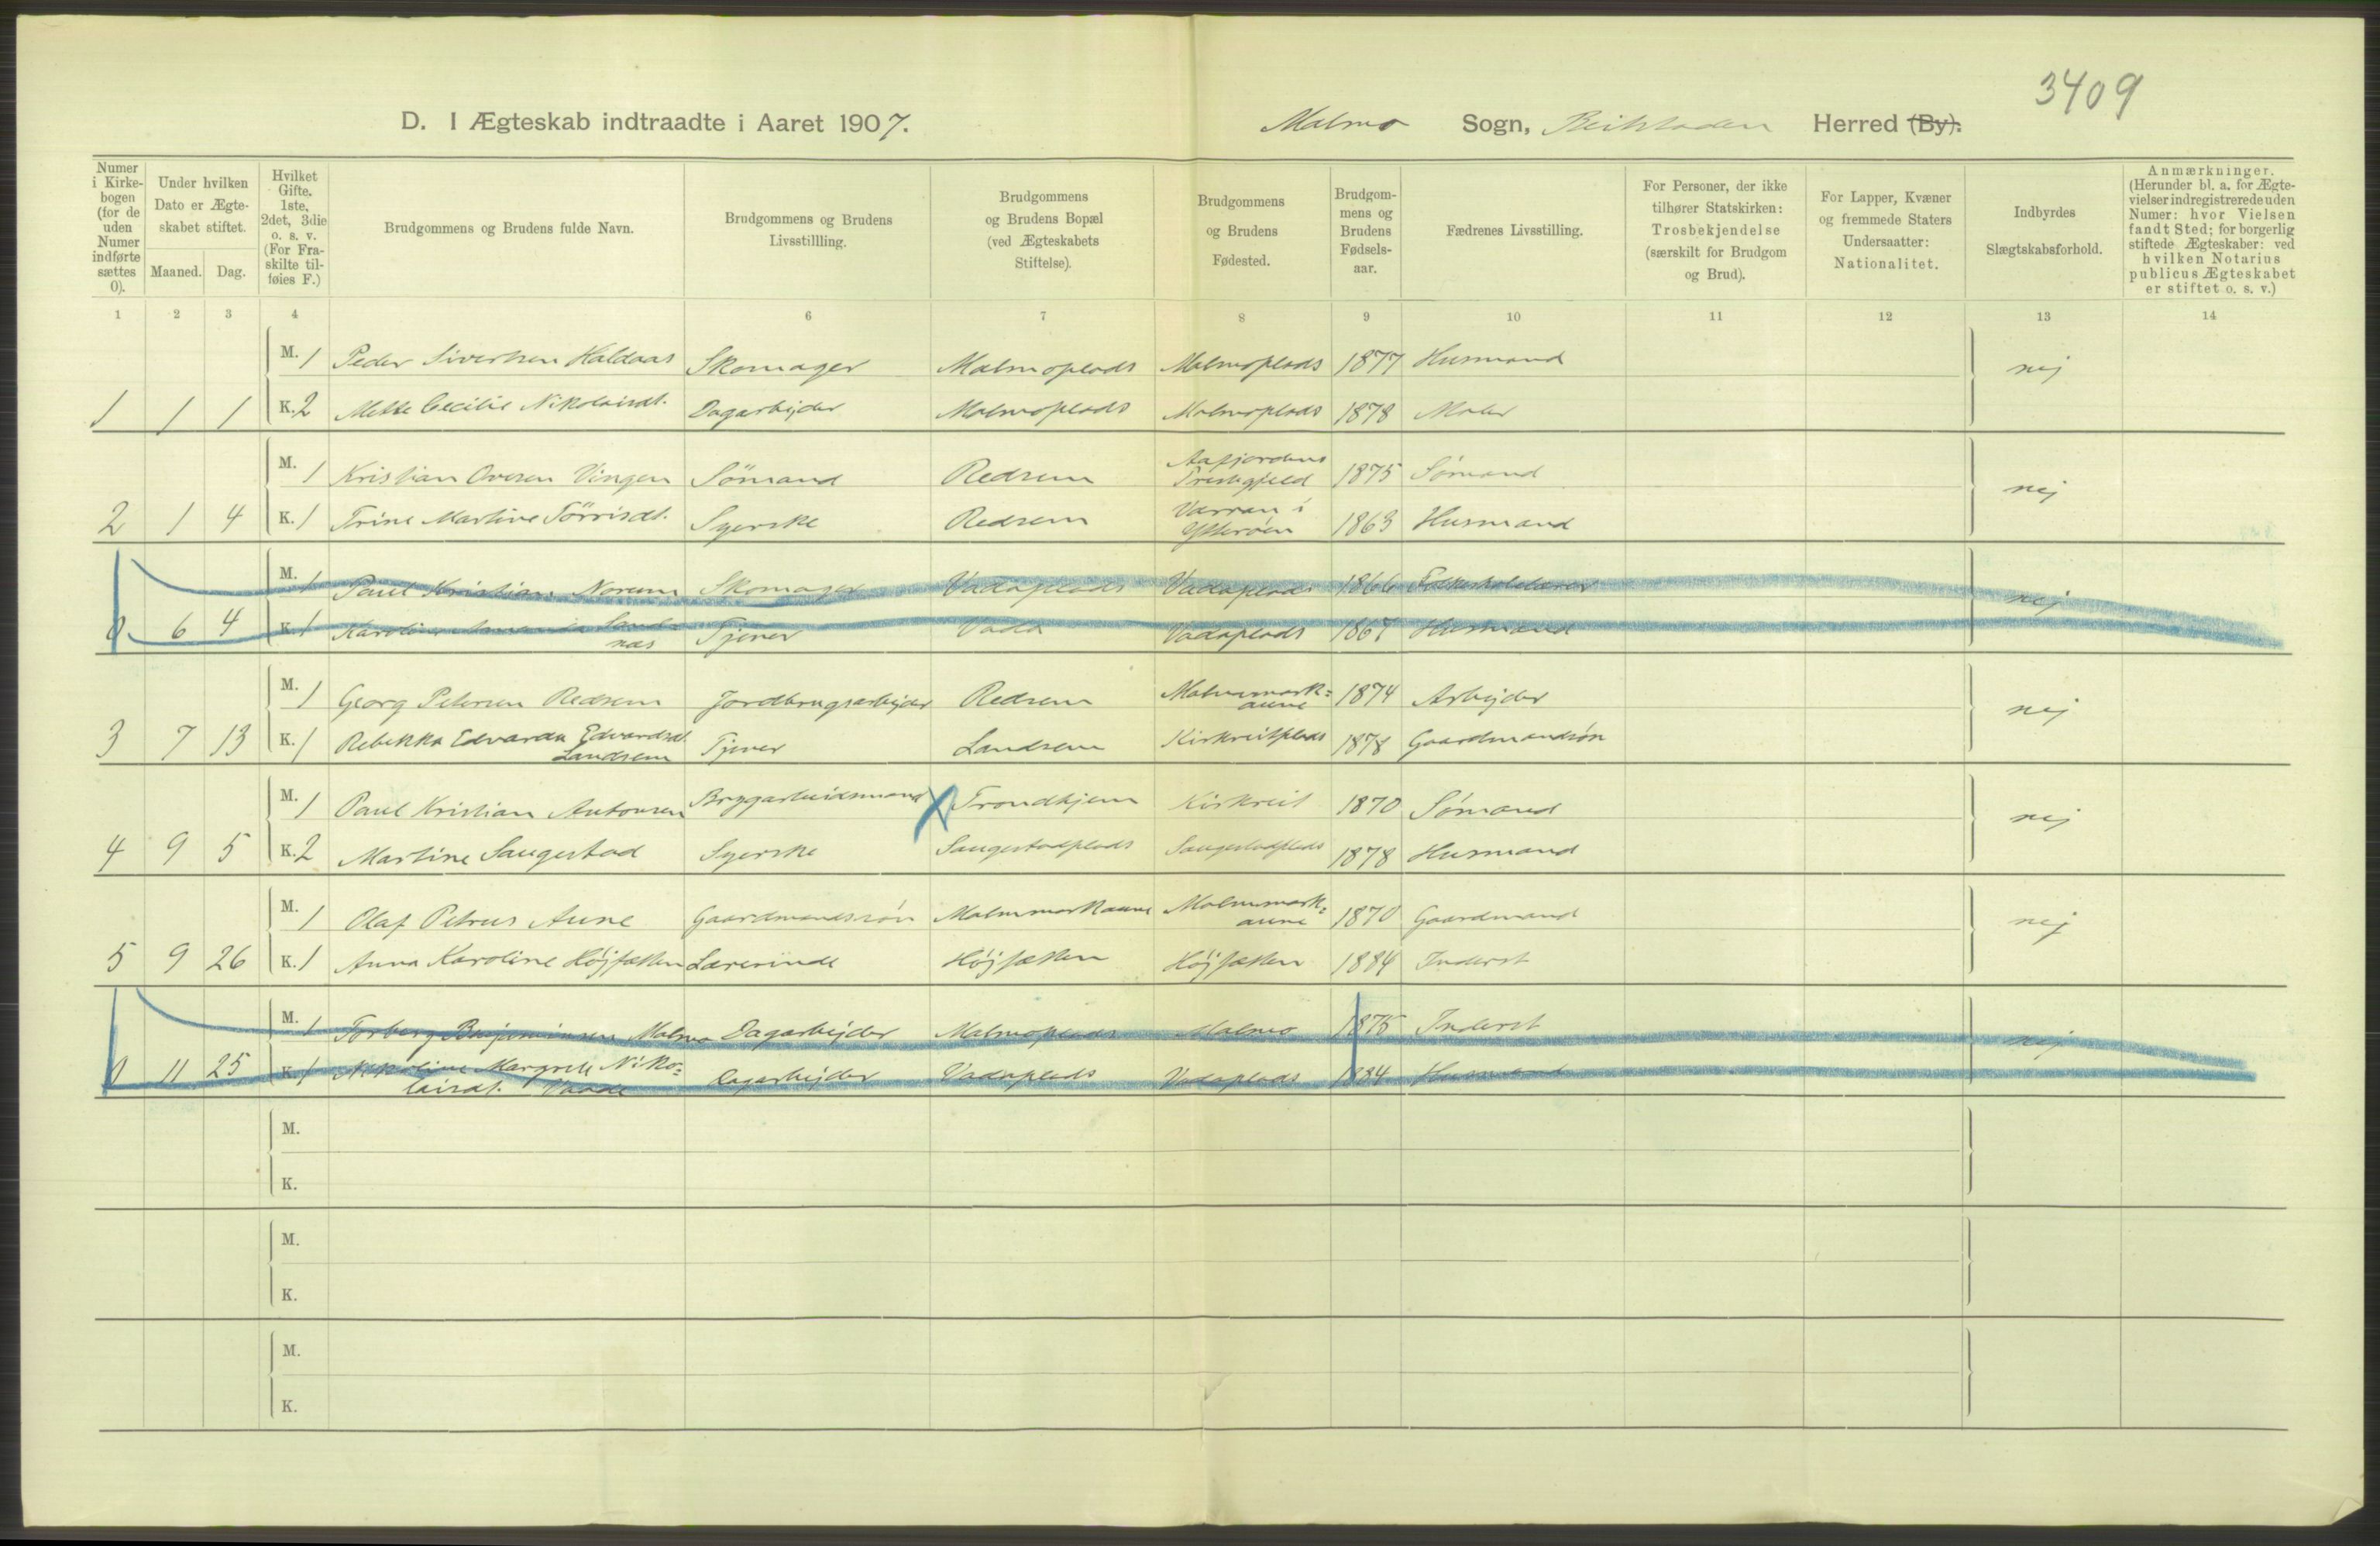 3409
D. I Ægteskab indtraadte i Aaret 1907. Malmo Sogn, Beitstaden Herred (By).
Numer i Kirkebogen (for de uden Numer indførte sættes 0).
Under hvilken Dato er Ægteskabet stiftet. Maaned. Dag.
Hvilket Gifte, 1ste, 2det, 3die o. s. v. (For Fraskilte tilføies F.)
Brudgommens og Brudens fulde Navn.
Brudgommens og Brudens Livsstillling.
Brudgommens og Brudens Bopæl (ved Ægteskabets Stiftelse).
Brudgommens og Brudens Fødested.
Brudgommens og Brudens Fødselsaar.
Fædrenes Livsstilling.
For Personer, der ikke tilhører Statskirken: Trosbekjendelse (særskilt for Brudgom og Brud).
For Lapper, Kvæner og fremmede Staters Undersaatter: Nationalitet.
Indbyrdes Slægtskabsforhold.
Anmærkninger. (Herunder bl. a. for Ægtevielser indregistrerede uden Numer: hvor Vielsen fandt Sted; for borgerlig stiftede Ægteskaber: ved hvilken Notarius publicus Ægteskabet er stiftet o. s. v.)
1 2 3 4 6 7 8 9 10 11 12 13 14
M. 1 Peder Sivertsen Haldaas Skomager Malmoplads Malmoplads 1877 Husmand nej
1 1 1 K. 2 Mette Cecilie Nikolaisdt. Dagarbejder Malmoplads Malmoplads 1878 Maler
M. 1 Kristian Ovesen Vingen Sömand Redsem Aafjordens Prestegjeld 1875 Sømand nej
2 1 4 K. 1 Trine Martine Törrisdt. Syerske Redsem Varran i Ytterøen 1863 Husmand
M. 1 Paul Kristian Norum Skomager Vadaplads Vadaplads 1866 Folkeskolelærer nej
0 6 4 K. 1 Karoline Amanda Landnæs Tjener Vada Vadaplads 1867 Husmand
M. 1 Georg Petersen Redsem Jordbrugsarbejder Redsem Malmmarkaune 1874 Arbejder nej
3 7 13 K. 1 Rebekka Edvarda Edvardsd. Landsem Tjener Landsem Kirkreitplads 1878 Gaardmandsøn
M. 1 Paul Kristian Antonsen Bryggarbeidsmand Trondhjem Kirkreit 1870 Sømand nej
4 9 5 K. 2 Martine Saugestad Syerske Saugestadplads Saugestadplads 1878 Husmand
M. 1 Olaf Petrus Aune Gaardmandssøn Malmmarkaune Malmmarkaune 1870 Gaardmand nej
5 9 26 K. 1 Anna Karoline Højsætten Lærerinde Højsætten Højsætten 1884 Inderst
M. 1 Torberg Benjaminsen Malmo Dagarbejder Malmoplads Malmo 1875 Inderst nej
0 11 25 K. 1 Nikoline Margrete Nikolaisdt. Vaade Dagarbejder Vadaplads Vadaplads 1884 Husmand
M.
K.
M.
K.
M.
K.